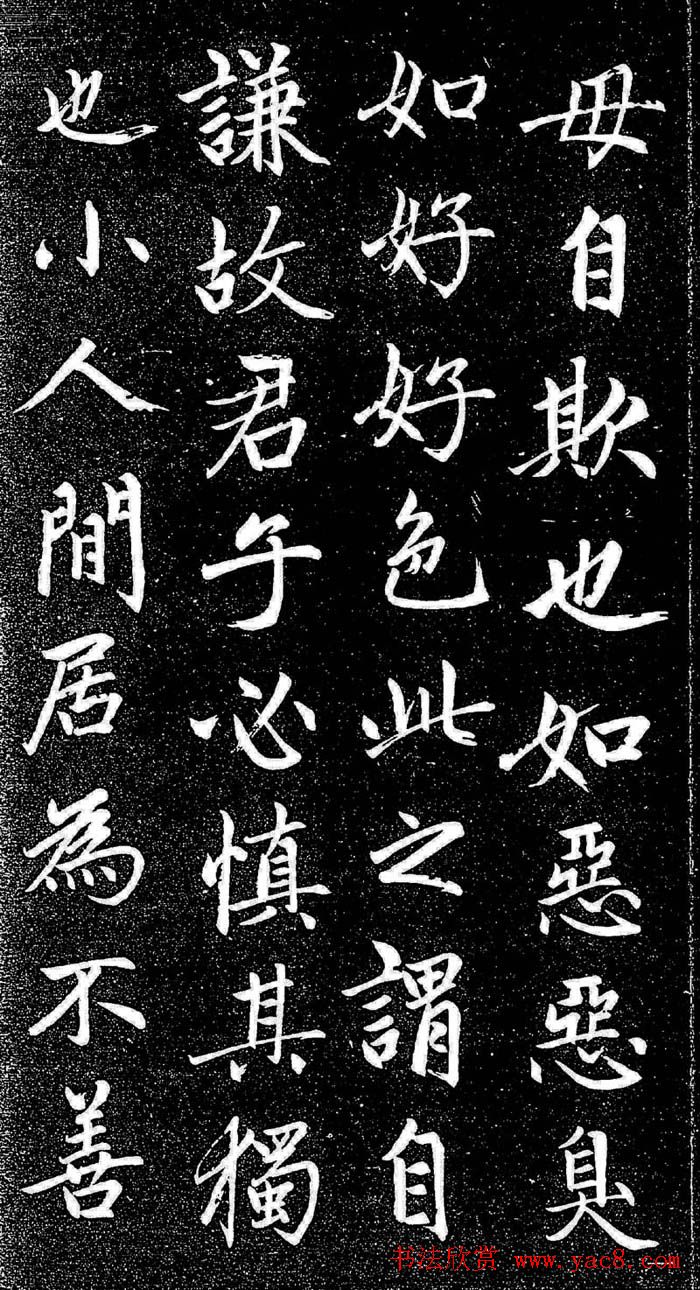 毋自欺也如惡惡臭
如好好色此之謂自
謙故君子必慎其獨
也小人閒居為不善
书法欣赏 www.yac8.com